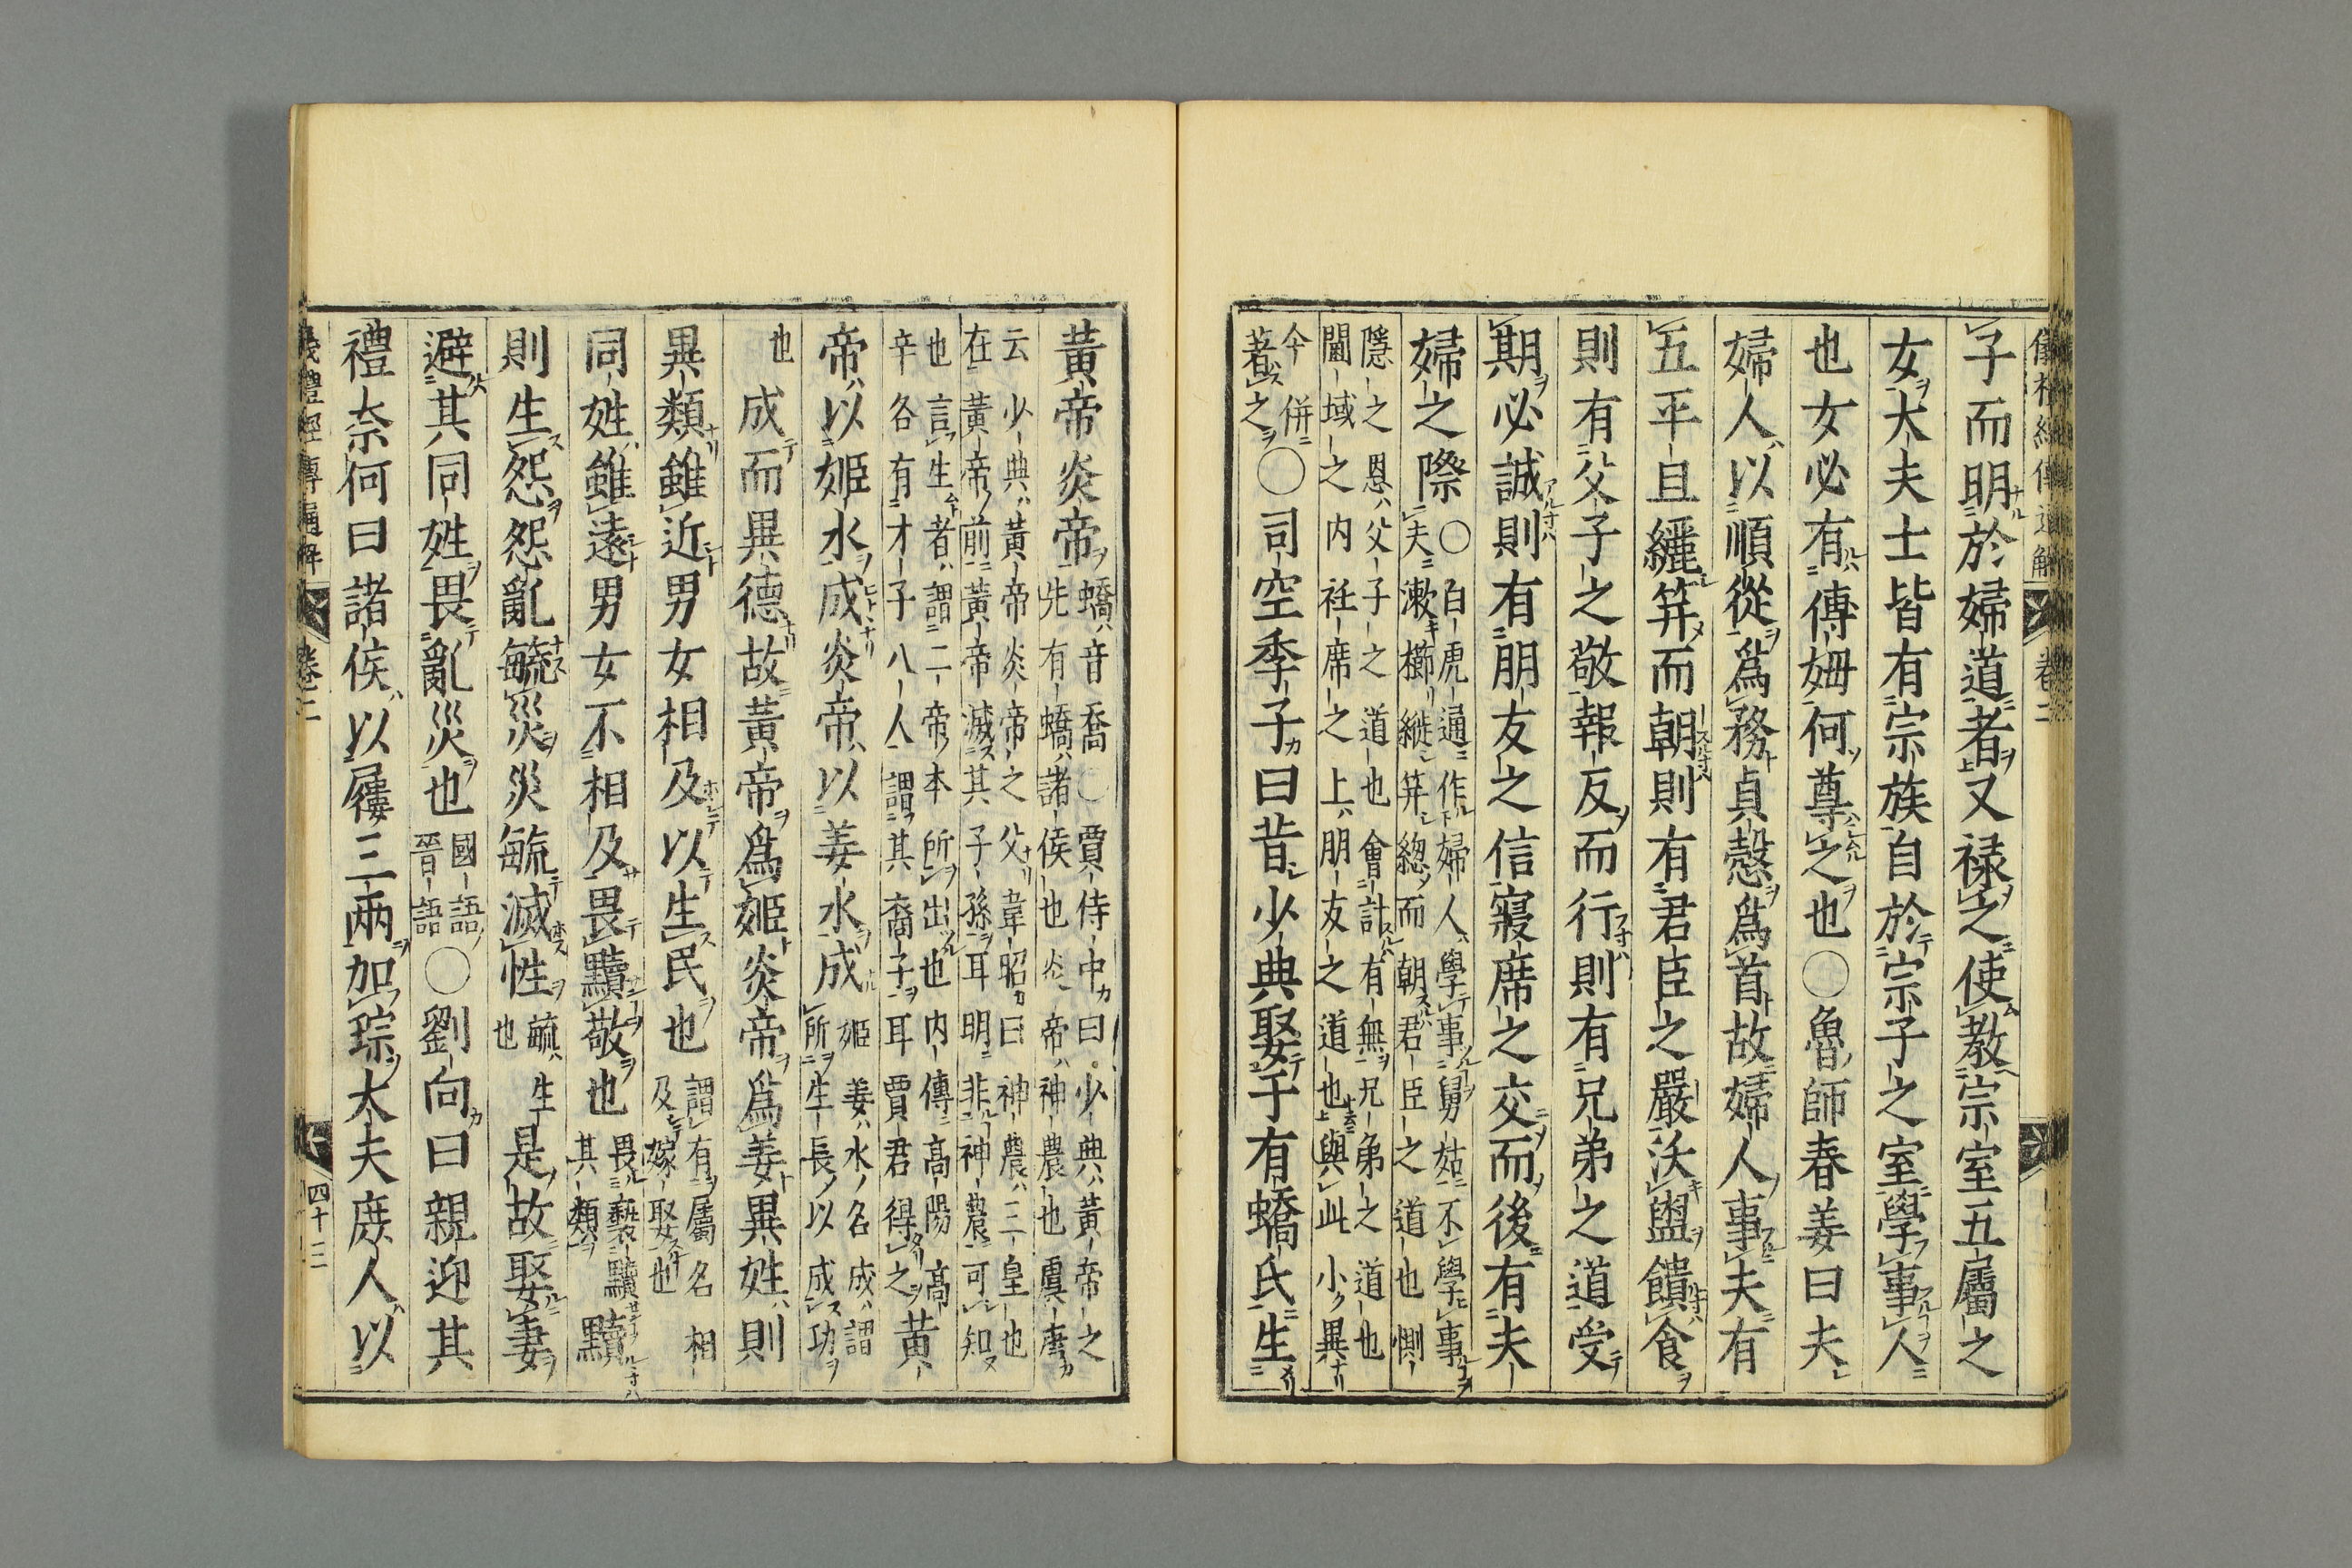 儀禮經傳通解 卷二
子而明於婦道者又祿之使教宗室五屬之
女大夫士皆有宗族自於宗子之室學事人
也女必有傅姆何尊之也〇魯師春姜曰夫
婦人以順從爲務貞慤爲首故婦人事夫有
五平旦纚笄而朝則有君臣之嚴沃盥饋食
則有父子之敬報反而行則有兄弟之道受
期必誠則有朋友之信寢席之交而後有夫
婦之際〇白虎通作婦人學事舅姑不學事
夫漱櫛縰笄總而朝君臣之道也惻
隱之恩父子之道也會計有無兄弟之道也
閫域之内衽席之上朋友之道也與此小異
今併
著之〇司空季子曰昔少典娶于有蟜氏生
黃帝炎帝蟜音喬〇賈侍中曰少典黃帝之
先有蟜諸侯也炎帝神農也虞唐
云少典黃帝炎帝之父韋昭曰神農三皇也
在黃帝前黃帝滅其子孫耳明非神農可知
也言生者謂二帝本所出也内傳高陽高
辛各有才子八人謂其裔子耳賈君得之黃
帝以姬水成炎帝以姜水成姬姜水名成謂
所生長以成功
也成而異德故黃帝爲姬炎帝爲姜異姓則
異類雖近男女相及以生民也謂有屬名相
及嫁娶也
同姓雖遠男女不相及畏黷敬也畏褻黷
其類黷
則生怨怨亂毓災災毓滅性毓生
也是故娶妻
避其同姓畏亂災也國語
晉語〇劉向曰親迎其
禮奈何曰諸侯以屨三兩加琮大夫庶人以
儀禮經傳通解 卷二 四十三